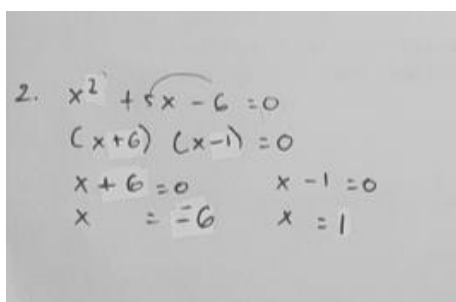 2. x² + 5x - 6 = 0
(x+6) (x-1) = 0
x + 6 = 0 x - 1 = 0
x = -6 x = 1